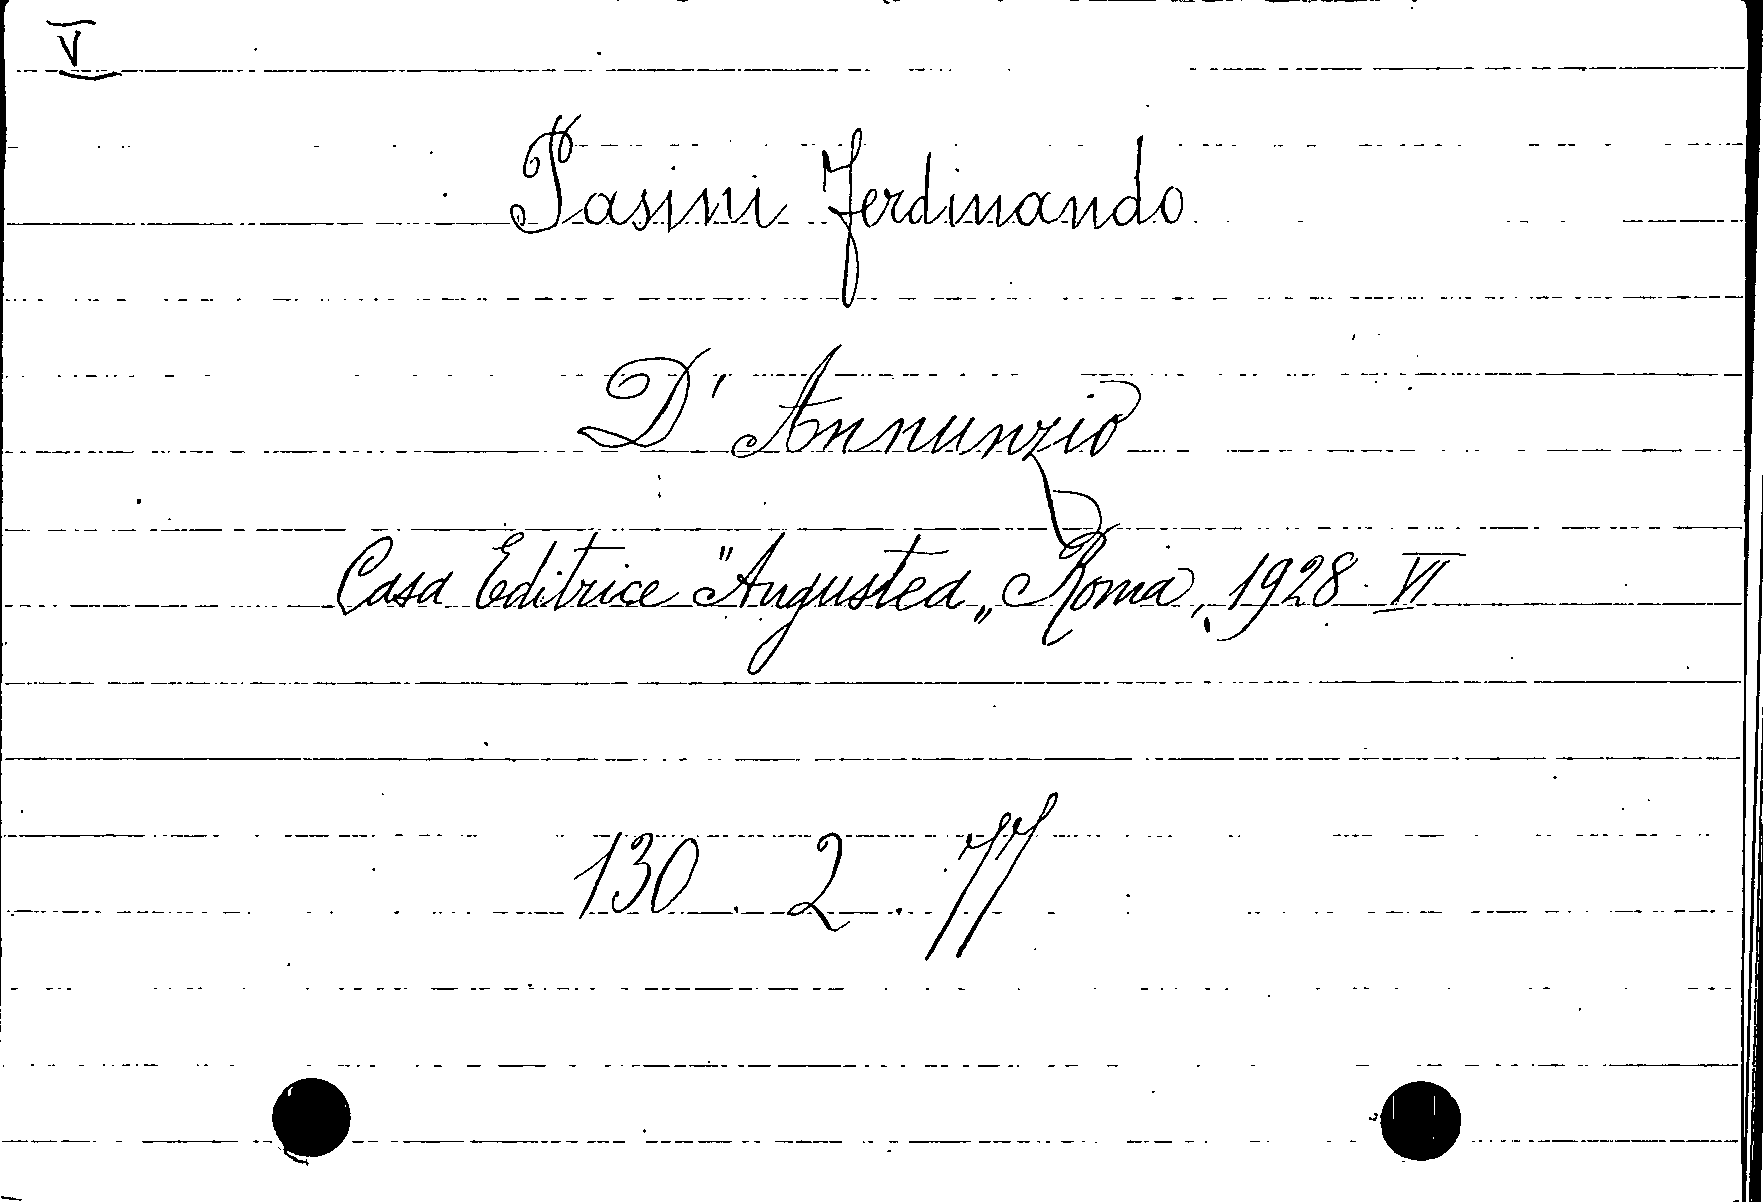 V
Pasini Ferdinando
D'Annunzio
Casa Editrice "Augustea„ Roma, 1928. VI
130 . 2 . 77